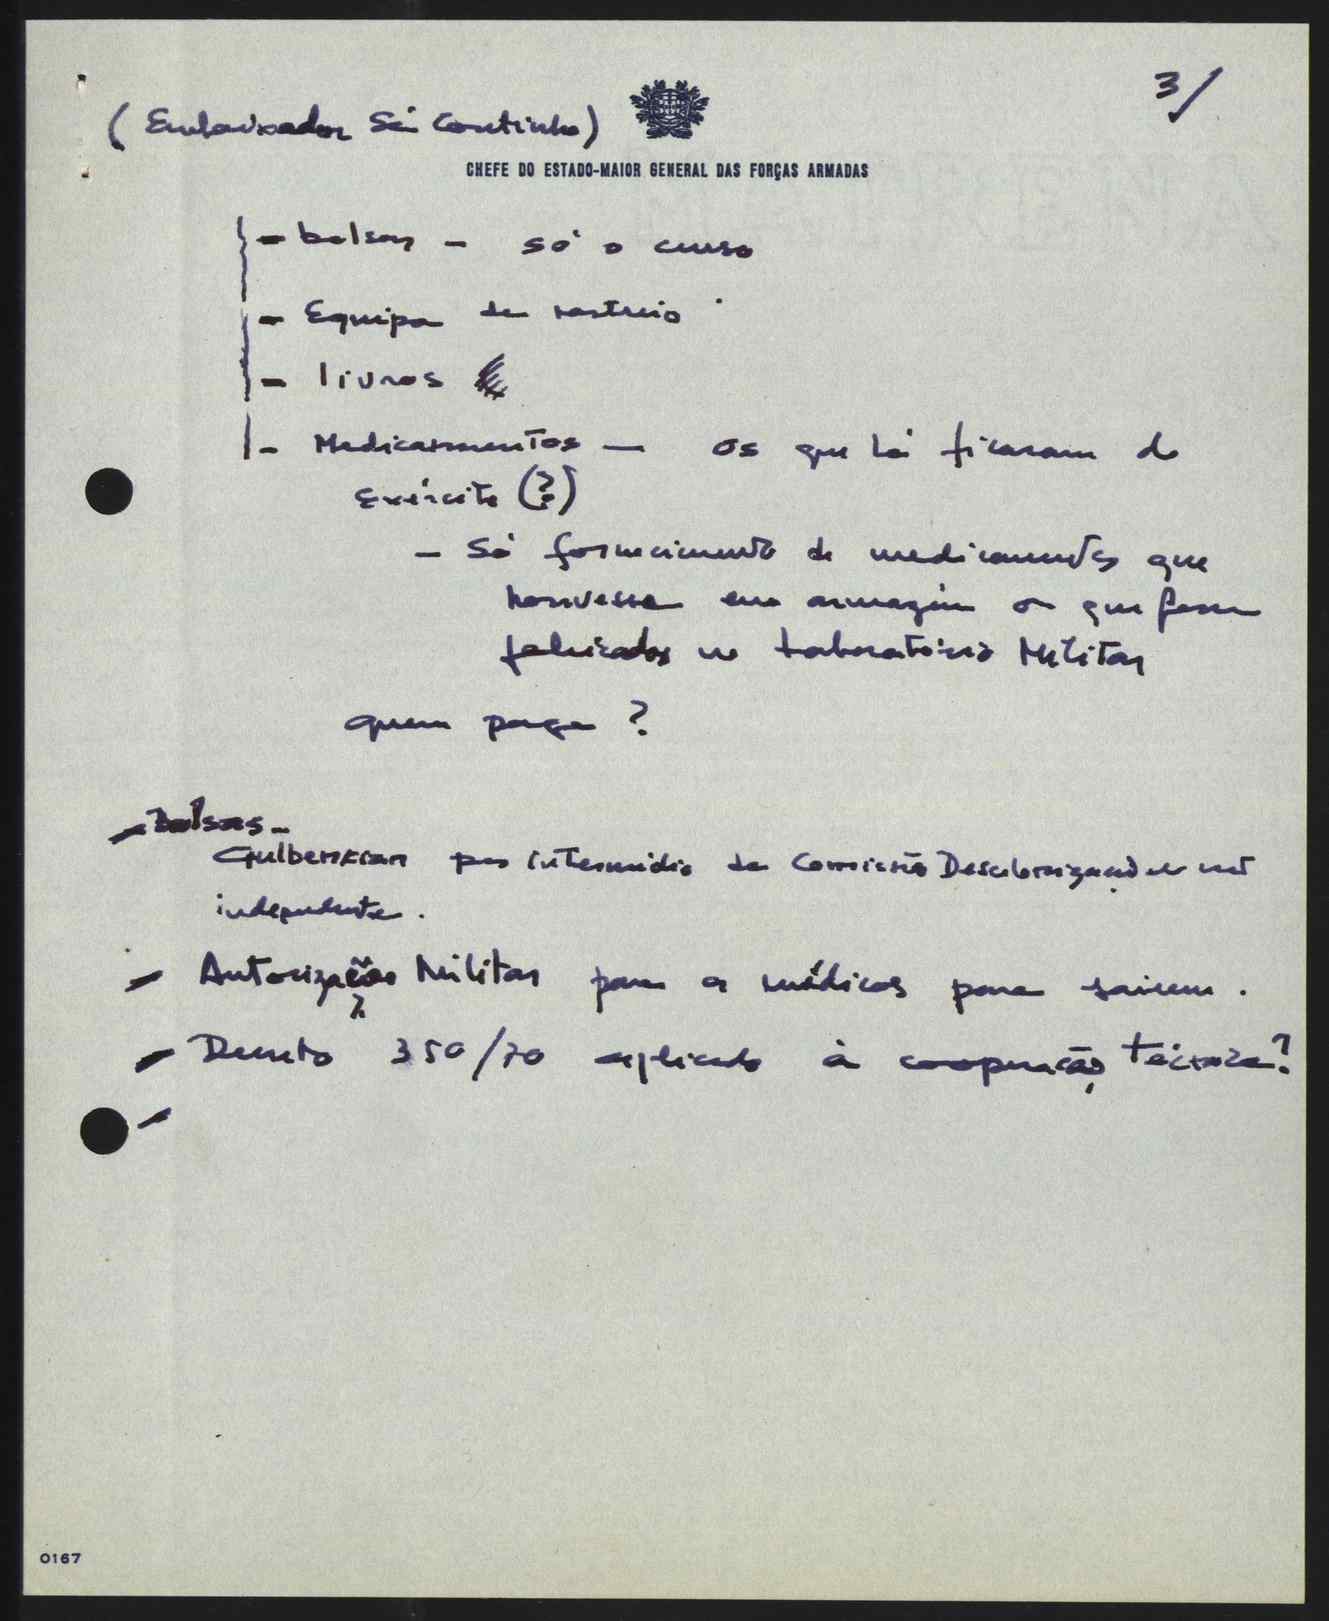 3/
(Embaixador Sá Coutinho)
CHEFE DO ESTADO-MAIOR GENERAL DAS FORÇAS ARMADAS
- bolsas - só o curso
- Equipa de rastreio
- livros
- Medicamentos - os que lá ficaram do
Exército (?)
- Só fornecimento de medicamentos que
houvesse em armazém ou que fossem
fabricados no Laboratório Militar
quem paga ?
- Bolsas -
Gulbenkian por intermédio da Comissão Descolonização
independente.
- Autorização Militar para os médicos para sairem.
- Decreto 350/70 aplicado à cooperação técnica?
-
0167